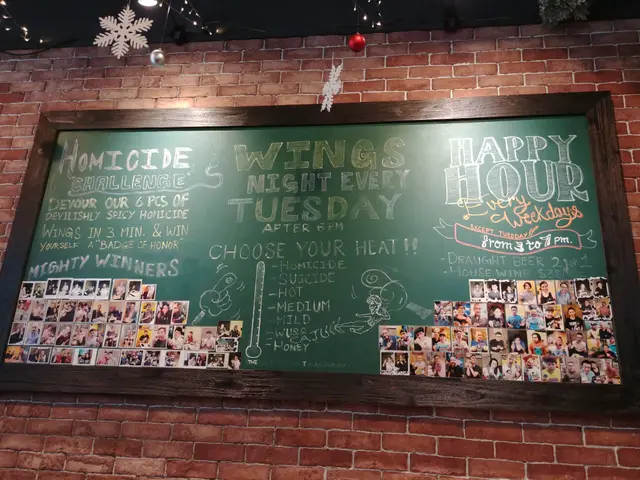 HOMICIDE
"CHALLENGE"
DEVOUR OUR 6 PCS OF
DEVILISHLY SPICY HOMICIDE
WINGS IN 3 MIN. & WIN
YOURSELF A "BADGE OF HONOR"
MIGHTY WINNERS
WINGS
NIGHT EVERY
TUESDAY
AFTER 6PM
CHOOSE YOUR HEAT!!
- HOMICIDE
- SUICIDE
- HOT
- MEDIUM
- MILD
- WUSS
CAJUN
- HONEY
THE
HAPPY
HOUR
Every
Weekdays
EXCEPT TUESDAY
from 3 to 7 pm.
- DRAUGHT BEER 2 for 1
- HOUSE WINE